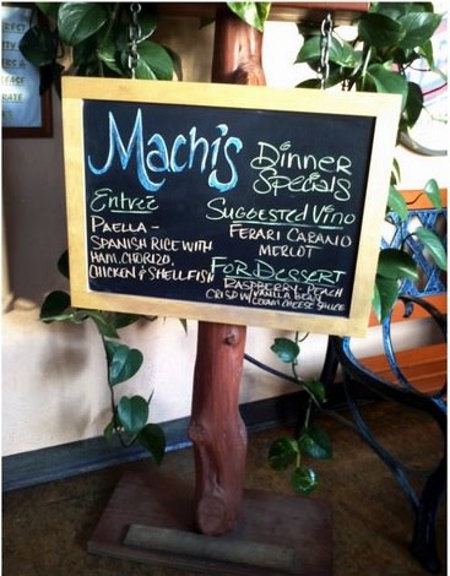 Machis
Dinner
Specials
Entreé
PAELLA -
SPANISH RICE WITH
HAM, CHORIZO,
CHICKEN & SHELLFISH
SUGGESTED VINO
FERARI CARANO
MERLOT
FOR DESSERT
RASPBERRY - PEACH
CRISP W/ VANILLA BEAN
CREAM CHEESE SAUCE
REST
CITY
EASE
RATE